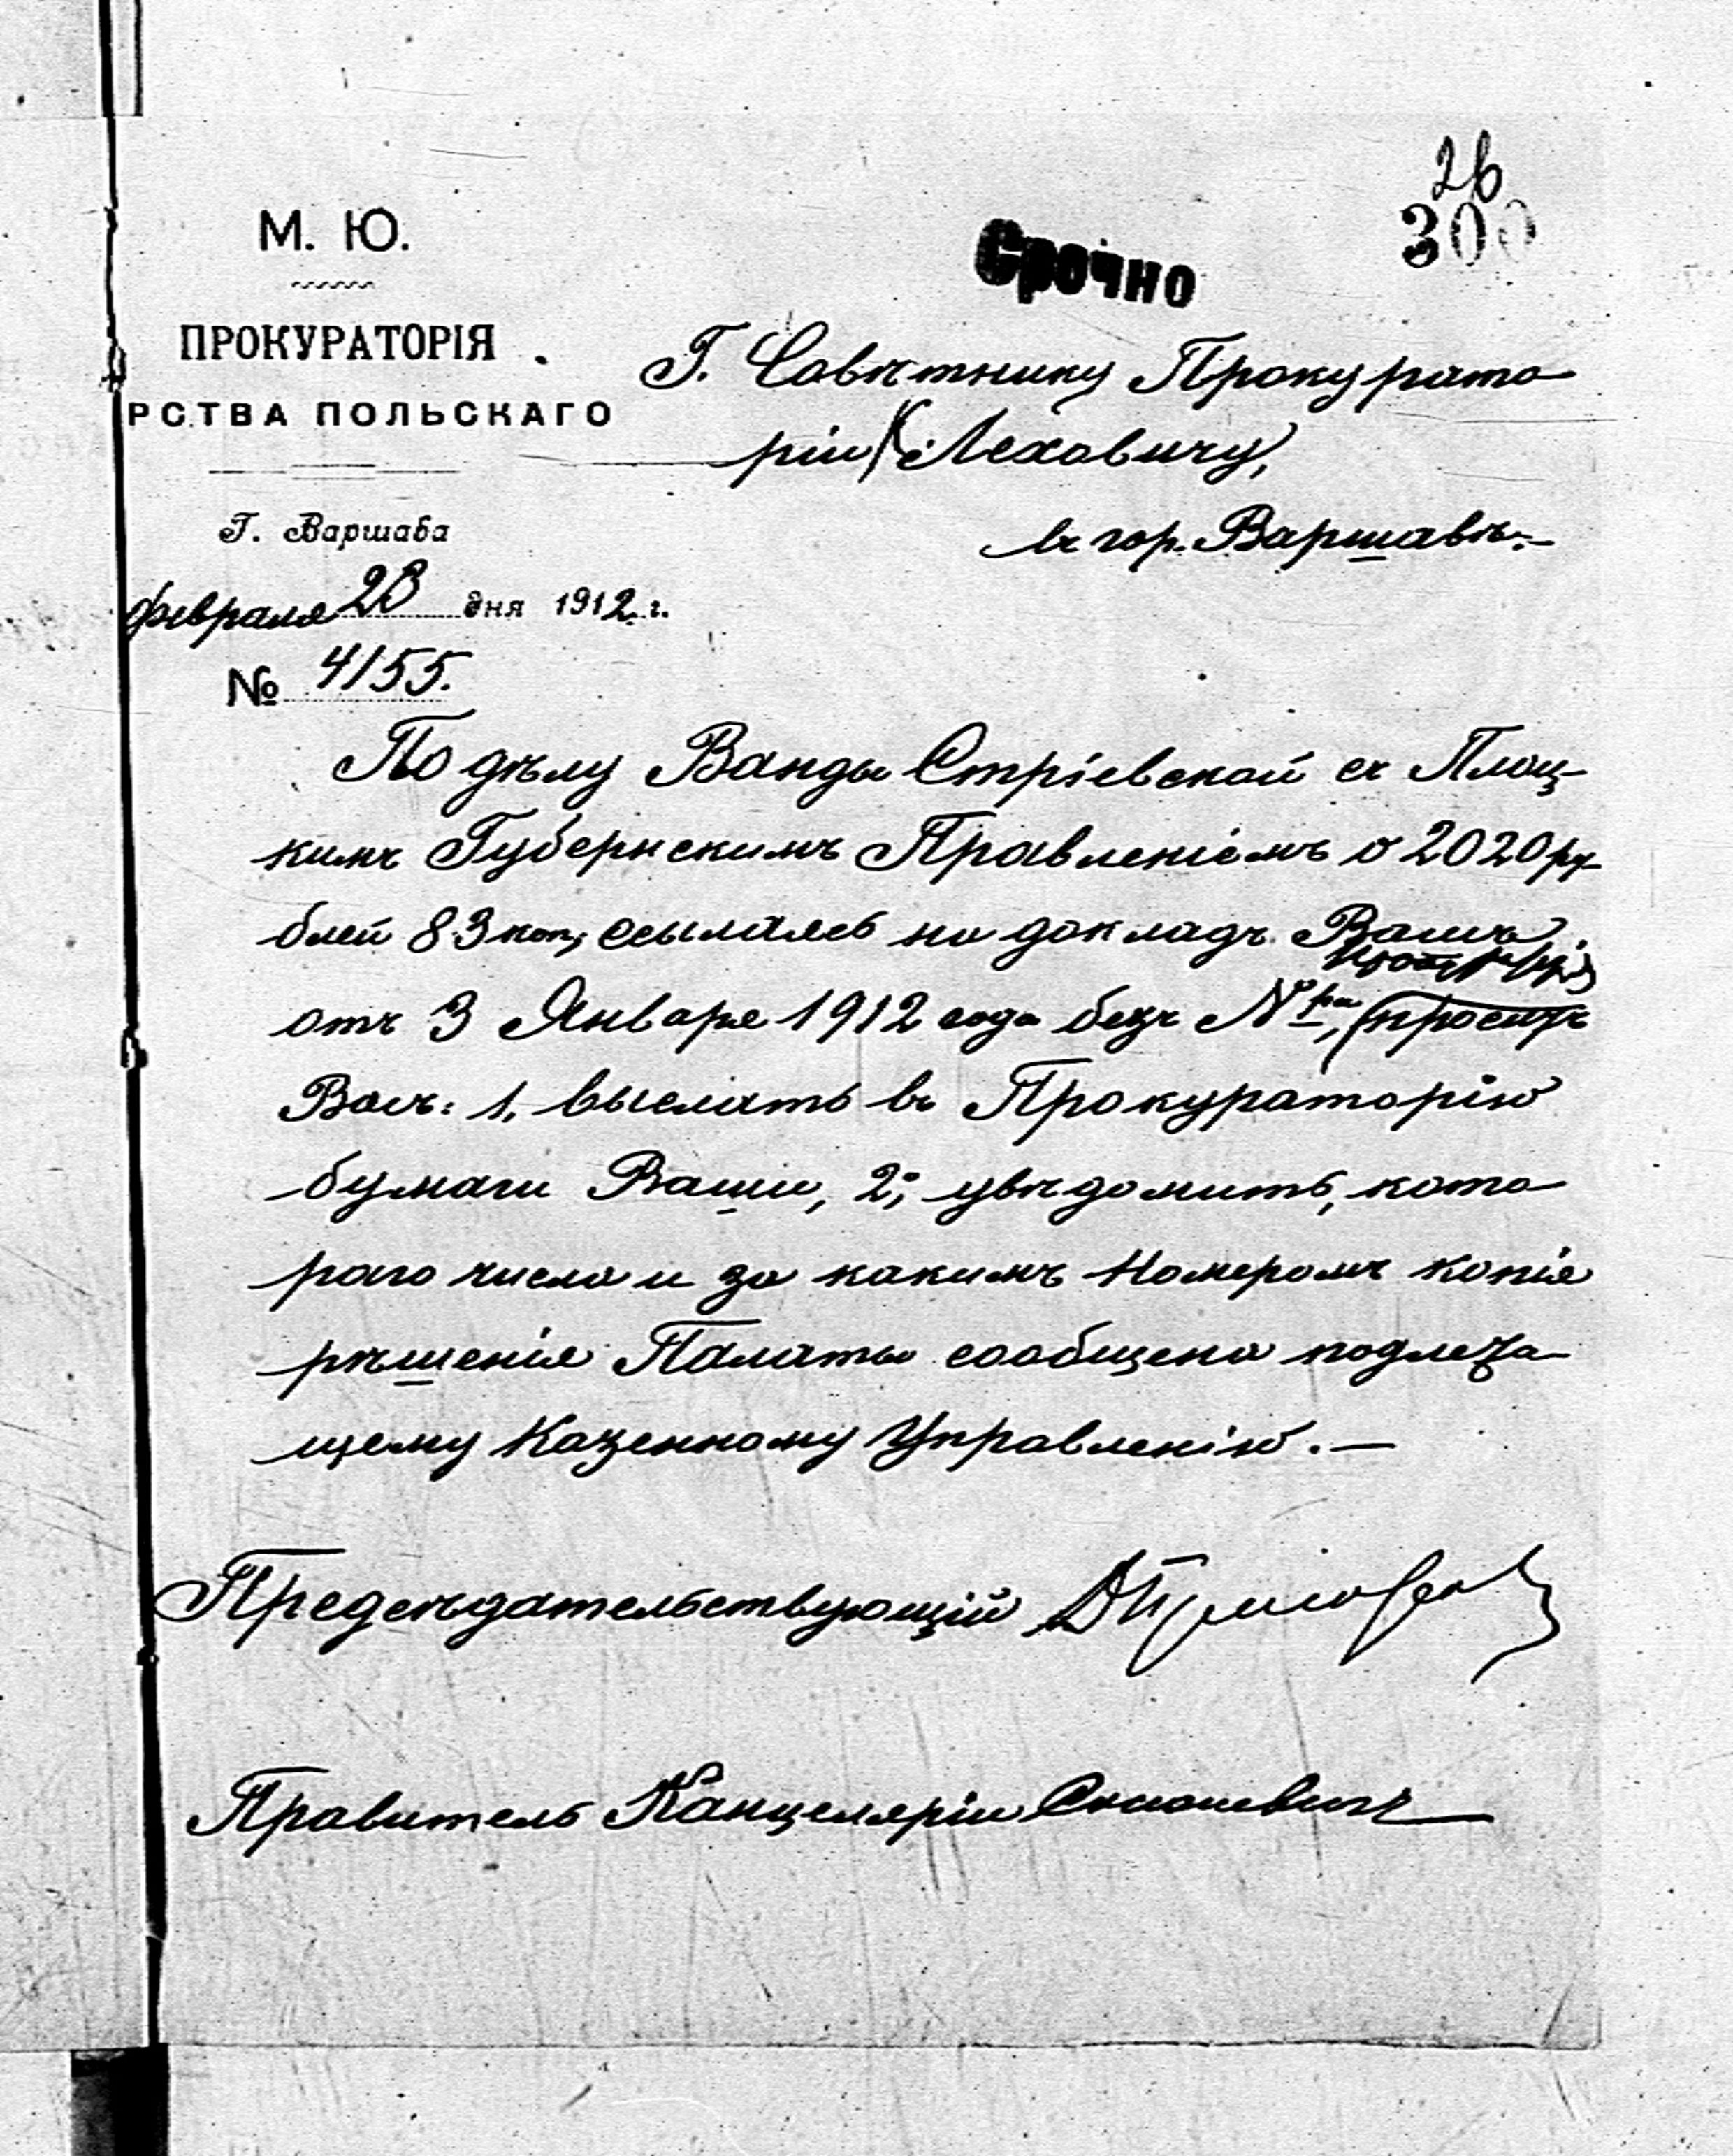 26
300
М. Ю.
Срочно
ПРОКУРАТОРІЯ
РСТВА ПОЛЬСКАГО
Г. Совѣтнику Прокурато-
ріи Леховичу,
въ гор. Варшавѣ.-
Г. Варшава
Февраля 23 дня 1912 г.
№ 4155.
По дѣлу Ванды Стріевской съ Плоц-
кимъ Губернскимъ Правленіемъ о 2020 ру-
блей 83 коп., ссылаясь на докладъ Вашъ
отъ 3 Января 1912 года безъ N ра, проситъ
Васъ: 1, выслать въ Прокураторію
бумаги Ваши, 2; увѣдомить, кото-
раго числа и за какимъ Номеромъ копія
рѣшенія Палаты сообщена подлежа-
щему Казенному Управленію.—
Предсѣдательствующій
Правитель Канцеляріи